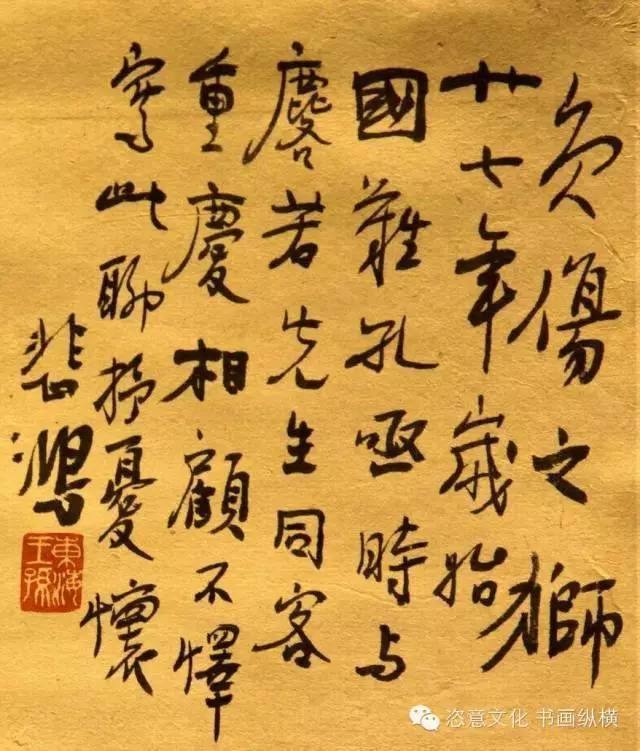 負傷之獅
廿七年歲始
國難孔亟時与
麐若先生同客
重慶相顧不懌
寫此聊抒憂懷
悲鴻
東海
王孫
恣意文化 书画纵横